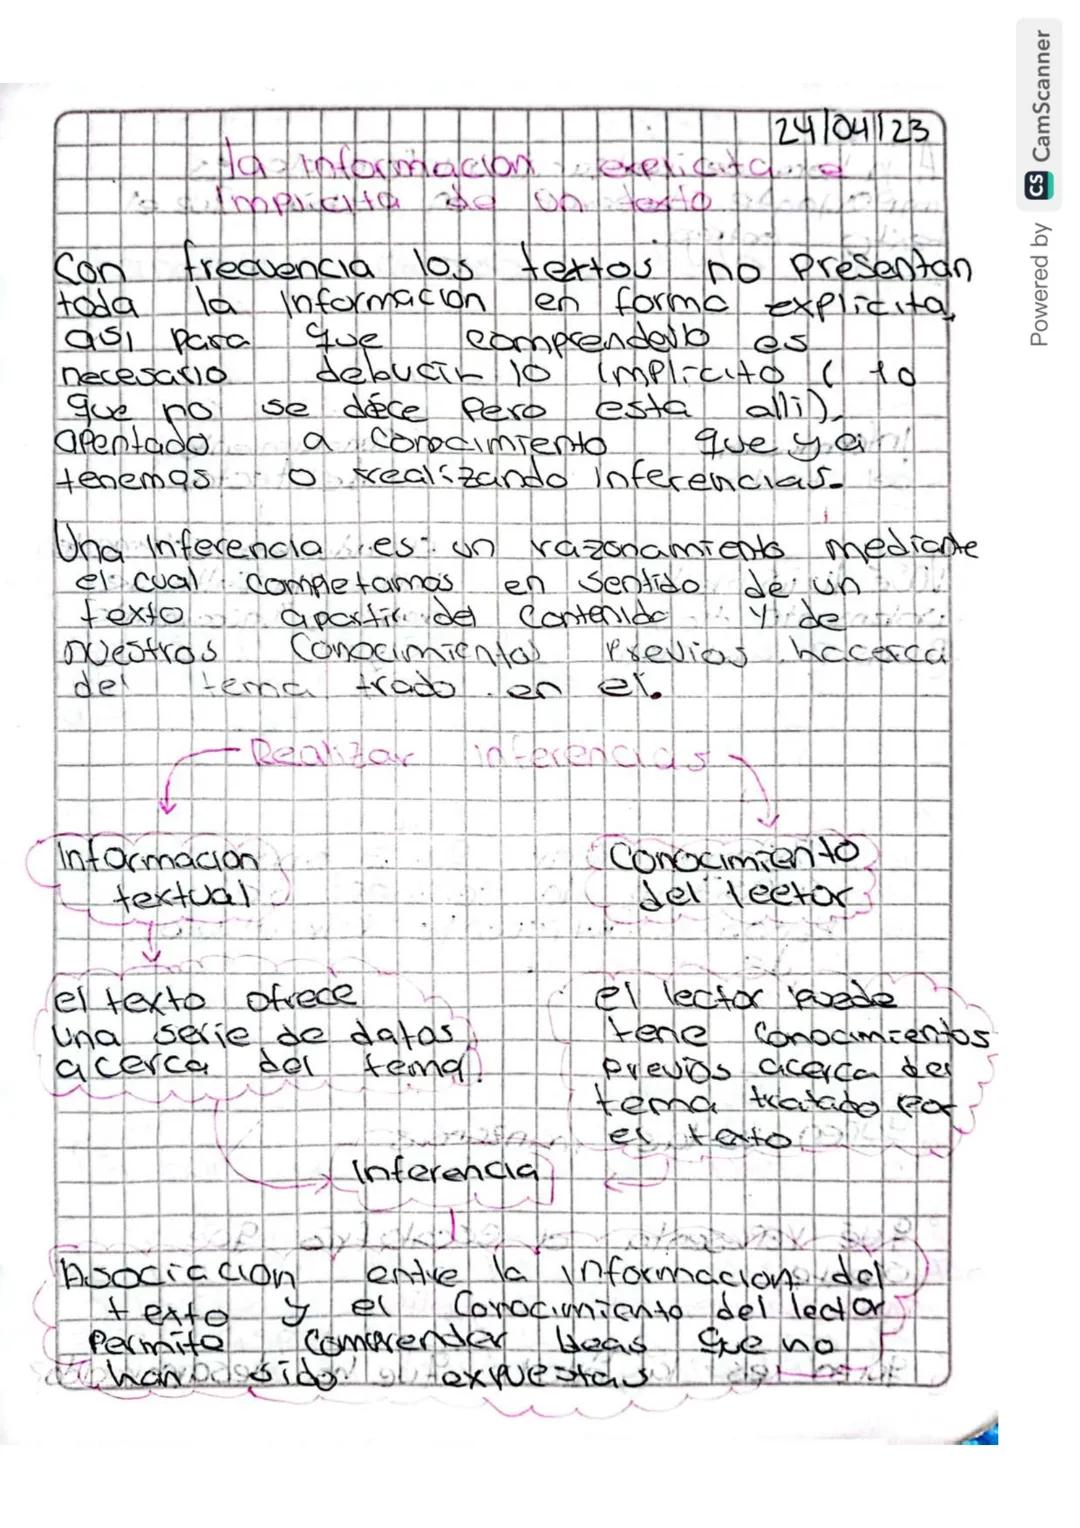 24/04/23
la informacion explicita e
Implicita de un texto
Con frecuencia los textos no presentan
toda la informacion en forma explicita,
asi para que comprenderlo es
necesario debucir lo implicito ( lo
que no se déce pero esta alli),
apentado a conocimiento que ya
tenemos o realizando inferencias.
Una Inferencia es un razonamiento mediante
el cual completamos en sentido de un
texto apartir del contenido y de
nuestros conocimientos previos hacerca
del tema trado en el.
Realizar inferencias
Informacion
textual
Conocimiento
del leetor
el texto ofrece
una serie de datos
acerca del tema.
el lector puede
tene conocimientos
previos acerca del
tema tratado por
el texto
Inferencia
Asociacion entre la informacion del
texto y el conocimiento del lector
Permite comprender beas que no
han sido expuestas
Powered by CS CamScanner